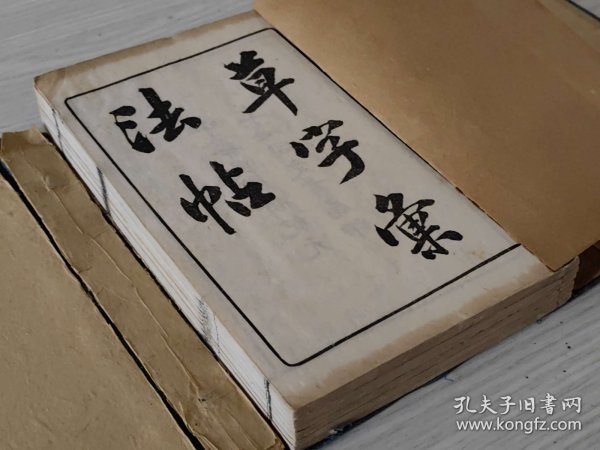 草字彙
法帖
孔夫子旧書网
www.kongfz.com